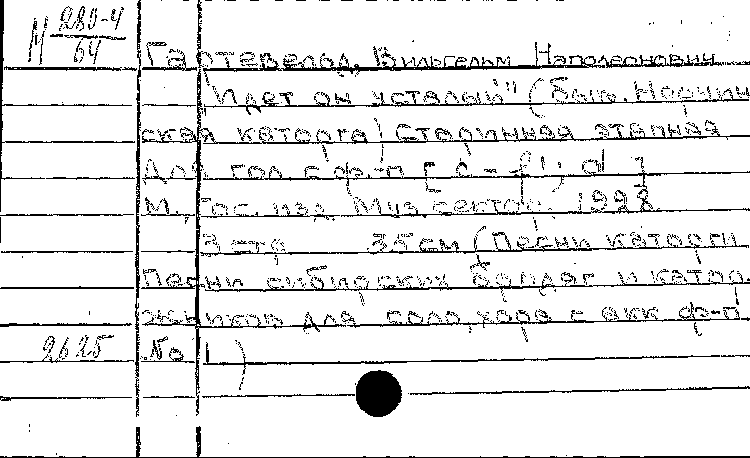 М 280-4/64
Гартевельд, Вильгельм Наполеонович
"Идет он усталый" (быв. Нерчин
ская каторга) старинная этапная
Для гол. с ф.-п [c - f¹; d]
М., Гос. изд. Муз. сектор. 1928
3 стр 35 см (Песни каторги
Песни сибирских бродяг и катор
жников для соло, хора с акк ф-п
2625 No 1)